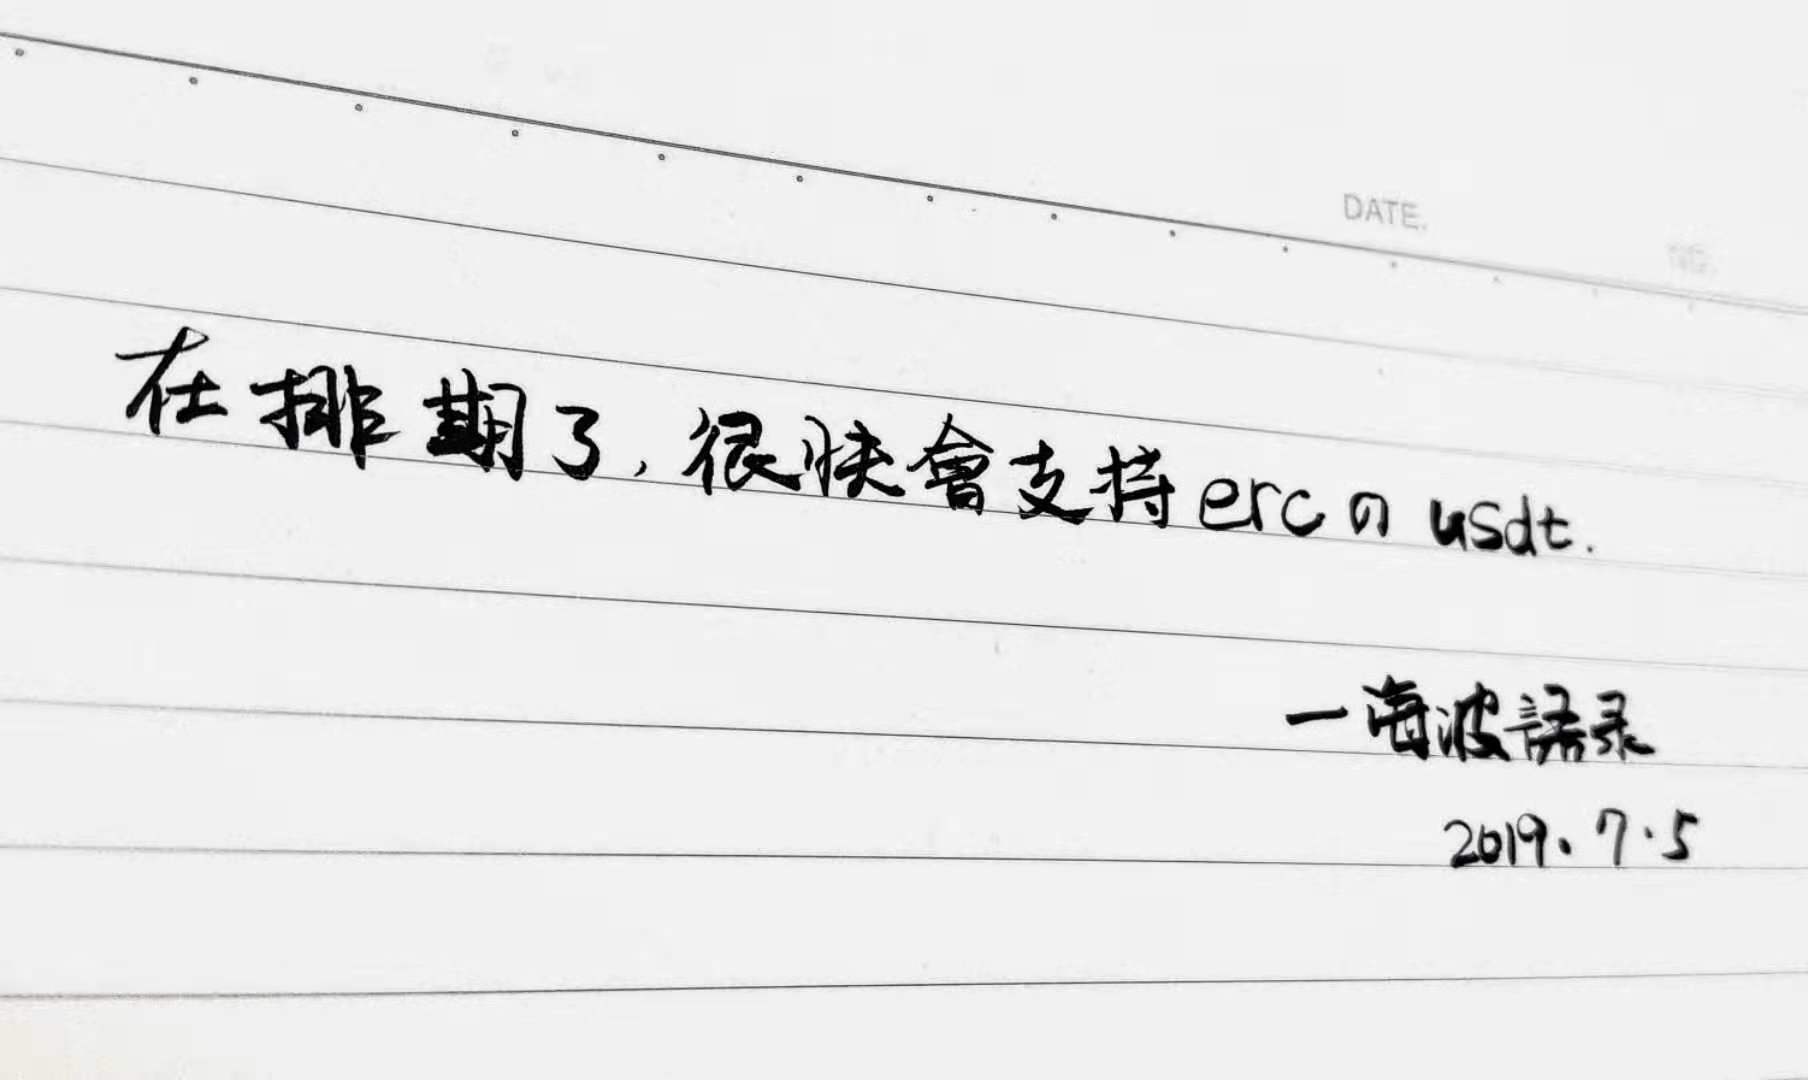 DATE.
NO.
在排期了,很快會支持ercのusdt.
一海波語录
2019.7.5